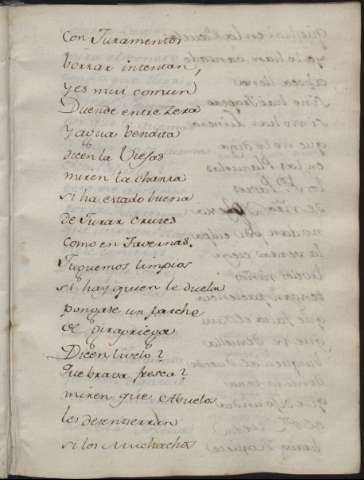 Con Juramentos
borrar intentan,
y es mui comun
Duende entre Zera
Y agua bendita
dicen la Viejas
miren la chanza
si ha estado buena
de Jurar cruzes
como en Tavernas.
Juguemos limpios
si hay quien le duela
pongase un parche
de pirapriega
Dicen livelo?
que brava fresca?
miren que Abuelos
les desentierran
si los Muchachos